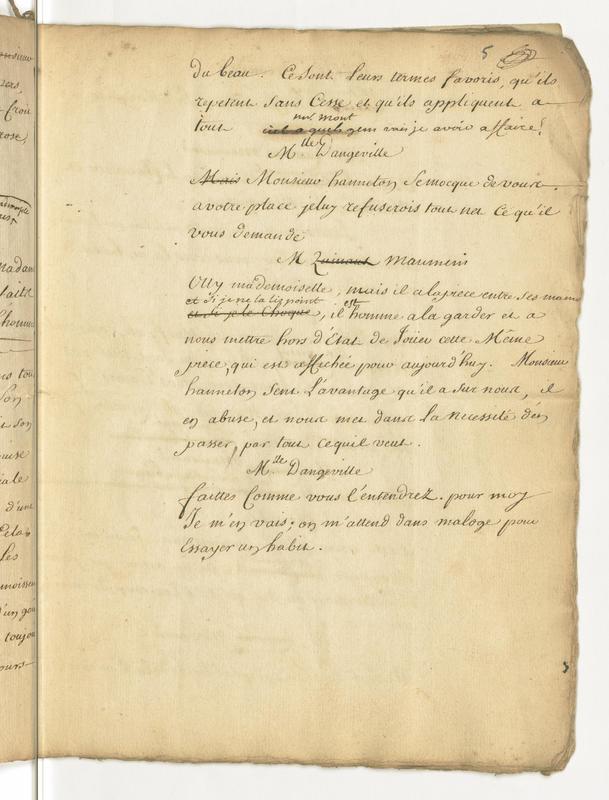 5
du beau. Ce sont leurs termes favoris, qu'ils
repetent sans Cesse et qu'ils appliquent a
tout a quels gens vais je avoir affaire!
M.lle Dangeville
Mais Monsieur hanneton se mocque de vous.
a votre place je luy refuserois tout net ce qu'il
vous demande
M Quinault Maumenis
Ouy mademoiselle, mais il a la piece entre ses mains
et si je ne la lis point est
et si je le Choque, il homme a la garder et a
nous mettre hors d'Etat de Joüer cette Même
piece, qui est affichée pour aujourd'huy. Monsieur
hanneton sent l'avantage qu'il a sur nous, il
en abuse, et nous met dans la necessité d'en
passer, par tout ce quil veut.
M.lle Dangeville
faittes Comme vous l'entendrez. pour moy
Je m'en vais; on m'attend dans ma loge pour
Essayer un habit.